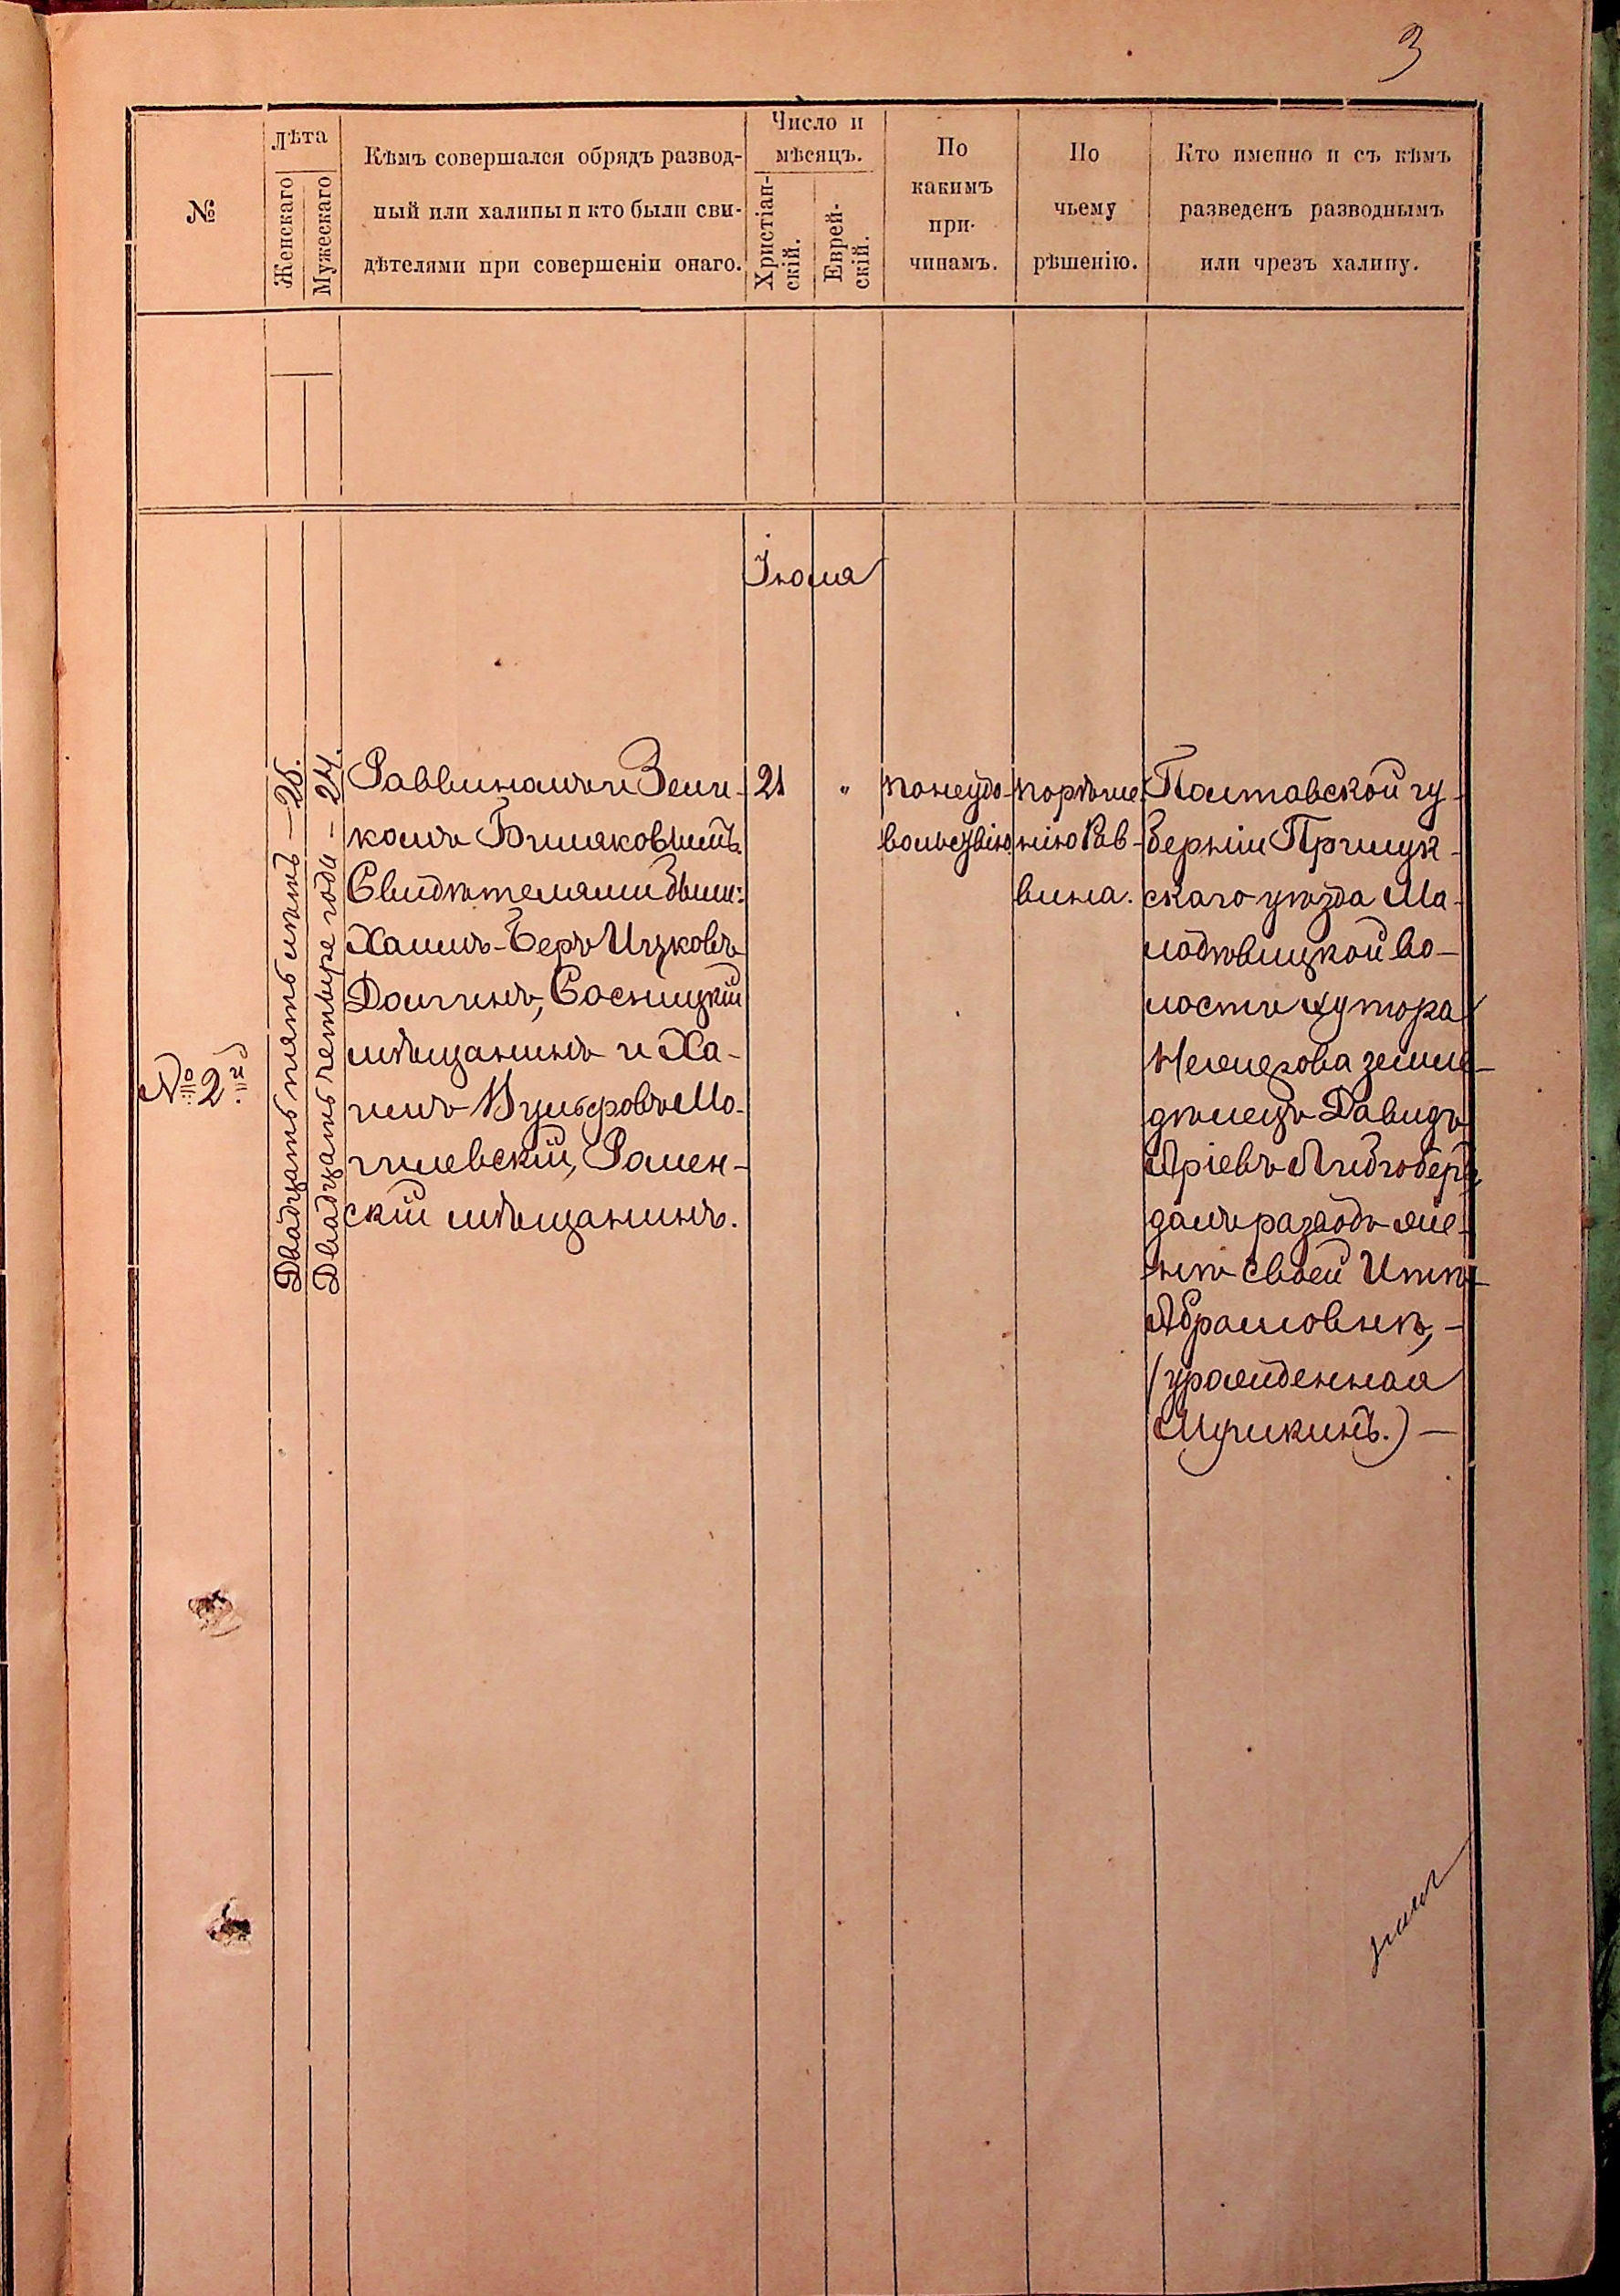 3
№
Лѣта
Женскаго
Мужескаго
Кѣмъ совершался обрядъ развод-
ный или халицы и кто были сви-
дѣтелями при совершеніи онаго.
Число и
мѣсяцъ.
Христіан-
скій.
Еврей-
скій.
По
какимъ
при-
чинамъ.
По
чьему
рѣшенію.
Кто именно и съ кѣмъ
разведенъ разводнымъ
или чрезъ халицу.
Іюля
№ 2й
Двадцать пять лѣтъ – 25.
Двадцать четыре года – 24.
Раввиномъ и Зели-
комъ
Свидѣтелями были:
Хаимъ-Беръ Ицковъ
Долгинъ, Сосницкій
мѣщанинъ и Ха-
имъ Вульфовъ Мо-
гилевскій, Ромен-
скій мѣщанинъ.
21 "
по неудо-
вольствію
по рѣше-
нію Рав-
вина.
Полтавской гу-
берніи Прилук-
скаго уѣзда Ма-
лодѣвицкой во-
лости хутора
земле-
дѣлецъ Давидъ
Аріевъ
далъ разводъ же-
нѣ своей Иткѣ
Абрамовнѣ, –
(урожденная
) –